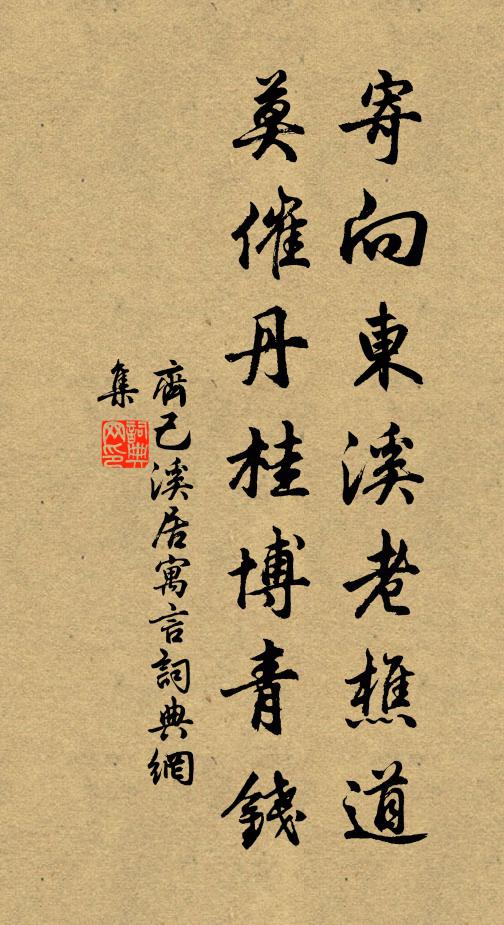 寄向東溪老樵道
莫催丹桂博青錢
齊己溪居寓言詞典網
集
詞典
网印